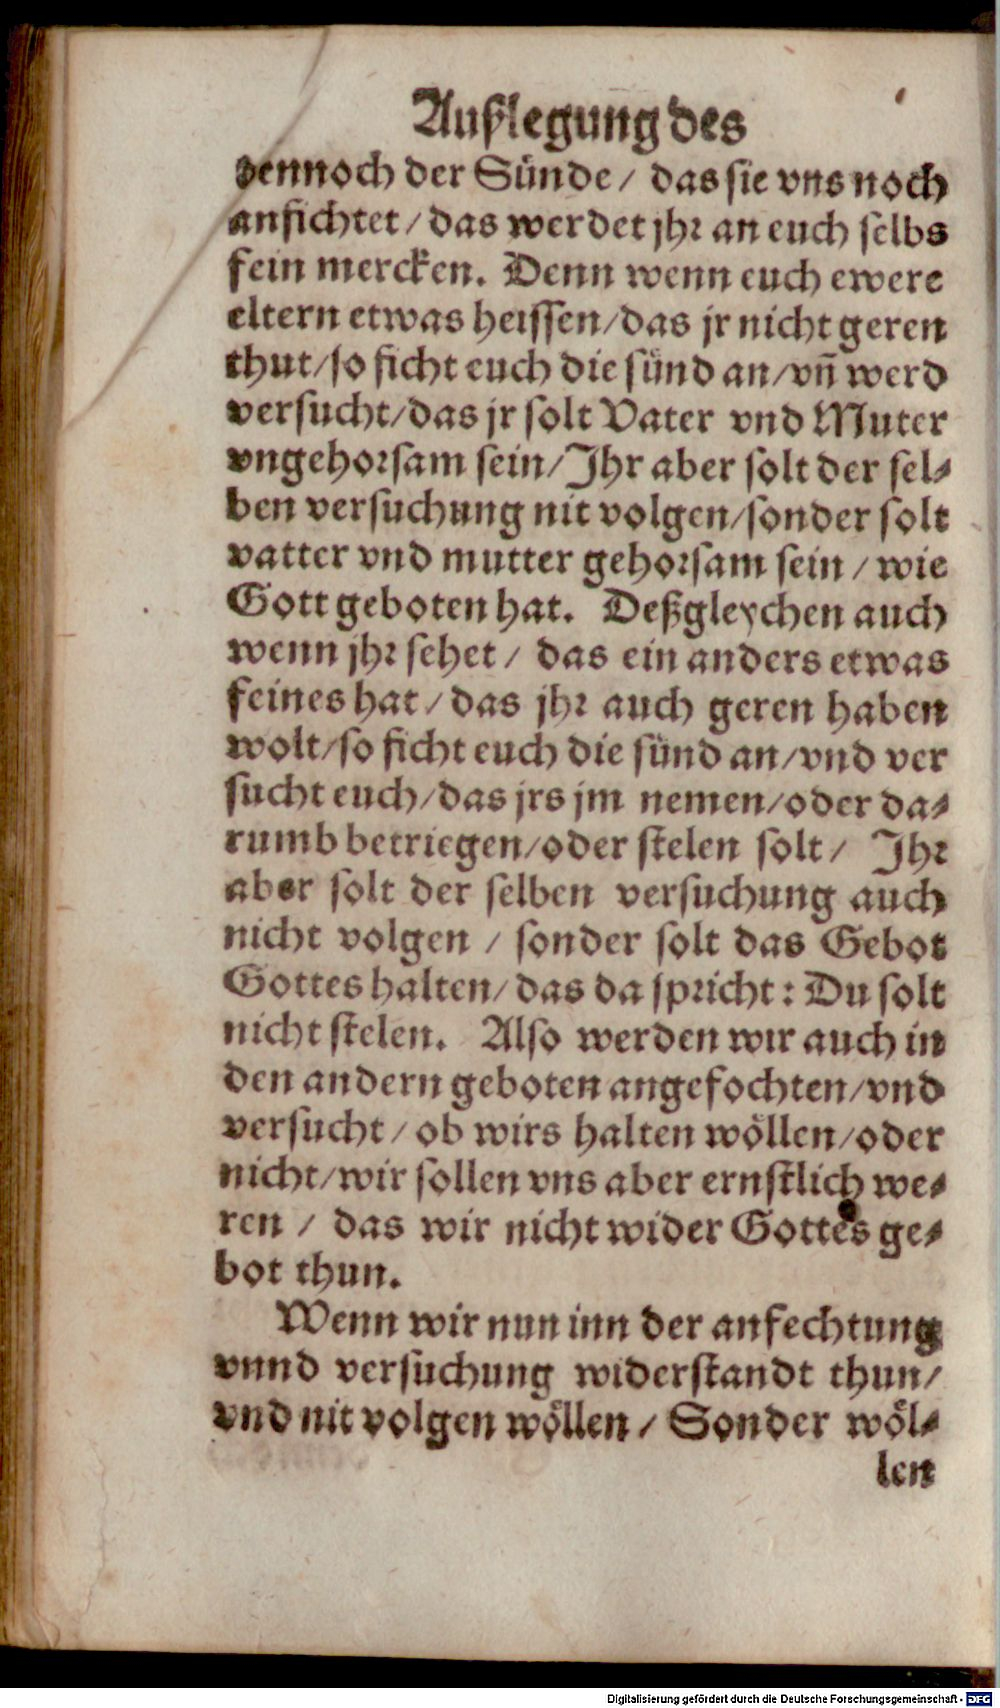 Außlegung des
dennoch der Sünde / das sie vns noch
anfichtet / das werdet jhr an euch selbs
fein mercken. Denn wenn euch ewere
eltern etwas heissen / das jr nicht geren
thut / so ficht euch die sünd an / vñ werd
versucht / das jr solt Vater vnd Muter
vngehorsam sein / Ihr aber solt der sel-
ben versuchung nit volgen / sonder solt
vatter vnd mutter gehorsam sein / wie
Gott geboten hat. Deßgleychen auch
wenn jhr sehet / das ein anders etwas
feines hat / das jhr auch geren haben
wolt / so ficht euch die sünd an / vnd ver
sucht euch / das jrs jm nemen / oder da-
rumb betriegen / oder stelen solt / Ihr
aber solt der selben versuchung auch
nicht volgen / sonder solt das Gebot
Gottes halten / das da spricht: Du solt
nicht stelen. Also werden wir auch in
den andern geboten angefochten / vnd
versucht / ob wirs halten wöllen / oder
nicht / wir sollen vns aber ernstlich we-
ren / das wir nicht wider Gottes ge-
bot thun.
Wenn wir nun inn der anfechtung
vnnd versuchung widerstandt thun /
vnd nit volgen wöllen / Sonder wöl-
len
Digitalisierung gefördert durch die Deutsche Forschungsgemeinschaft - DFG